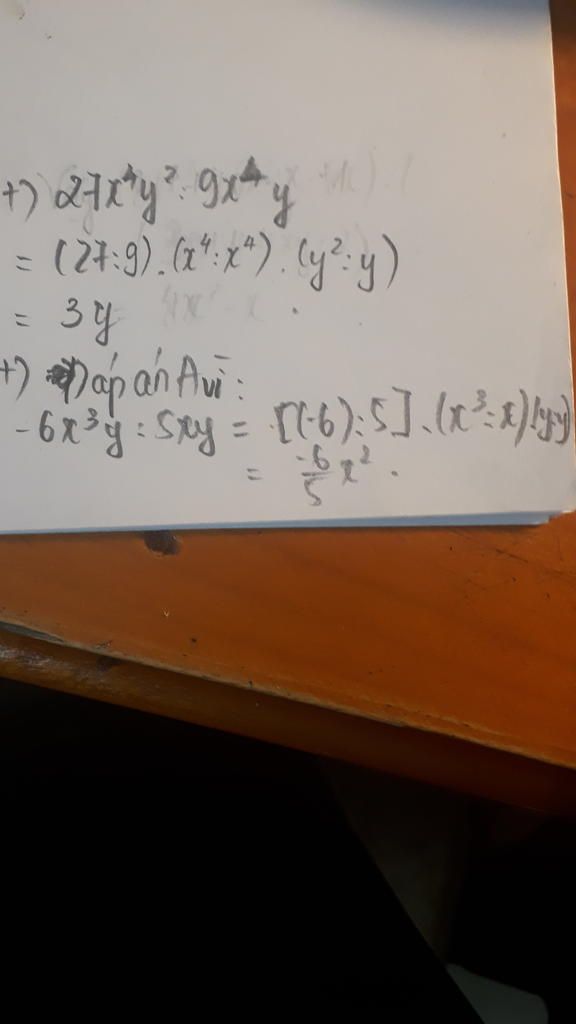 +) 27x⁴y² : 9x⁴y
= (27:9).(x⁴:x⁴).(y²:y)
= 3y
+) Đáp án A vì:
-6x³y : 5xy = [(-6):5].(x³:x)(y:y)
= -6/5 x².